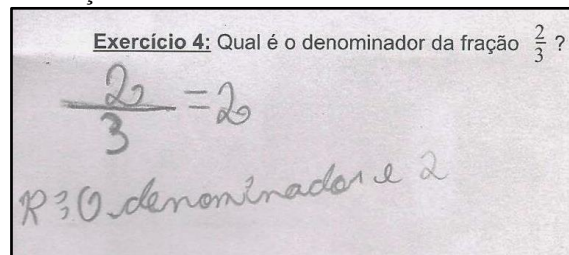 Exercício 4: Qual é o denominador da fração 2/3 ?
2/3 = 2
R: O denominador e 2